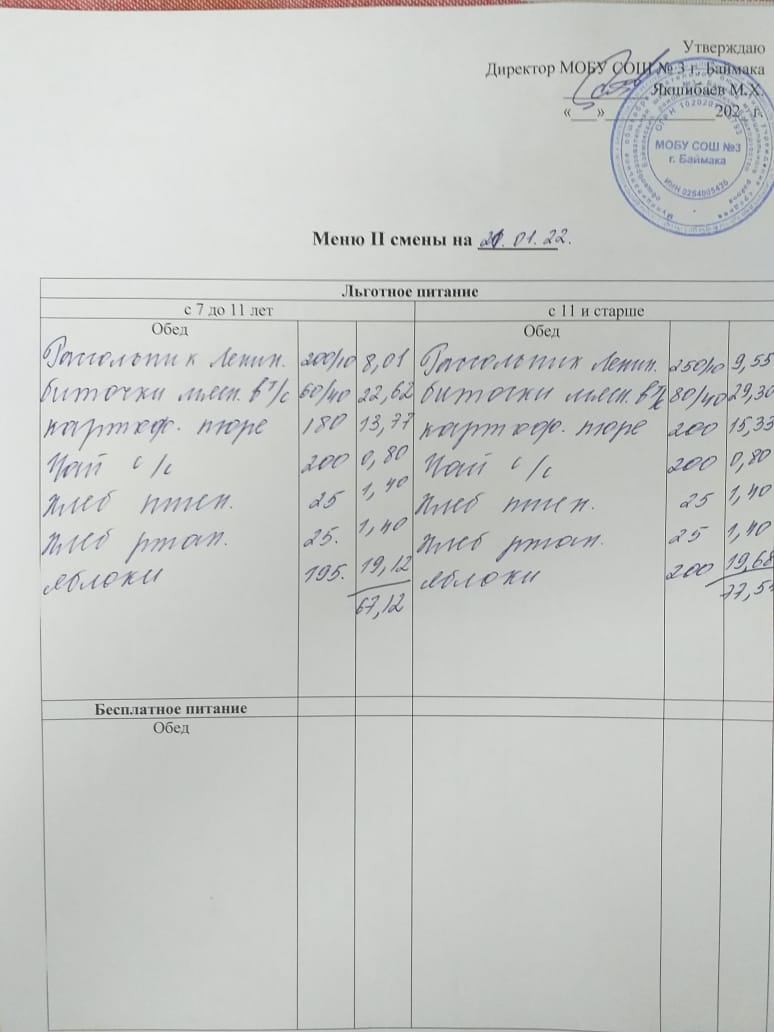 Утверждаю
Директор МОБУ СОШ № 3 г. Баймака
Якшибаев М.Х.
«___»______________202 г.
МОБУ СОШ №3
г. Баймака
ИНН 0254005435
Меню II смены на 21.01.22.
Льготное питание
с 7 до 11 лет с 11 и старше
Обед Обед
Рассольник Ленин. 200/10 8,01 Рассольник Ленин. 250/10 9,55
биточки мясн. в т/с 60/40 22,62 биточки мясн. в т/с 80/40 29,30
картоф. пюре 180 13,77 картоф. пюре 200 15,33
Чай с/с 200 0,80 Чай с/с 200 0,80
Хлеб пшен. 25 1,40 Хлеб пшен. 25 1,40
Хлеб ржан. 25. 1,40 Хлеб ржан. 25 1,40
яблоки 195. 19,12 яблоки 200 19,68
67,12 77,5
Бесплатное питание
Обед